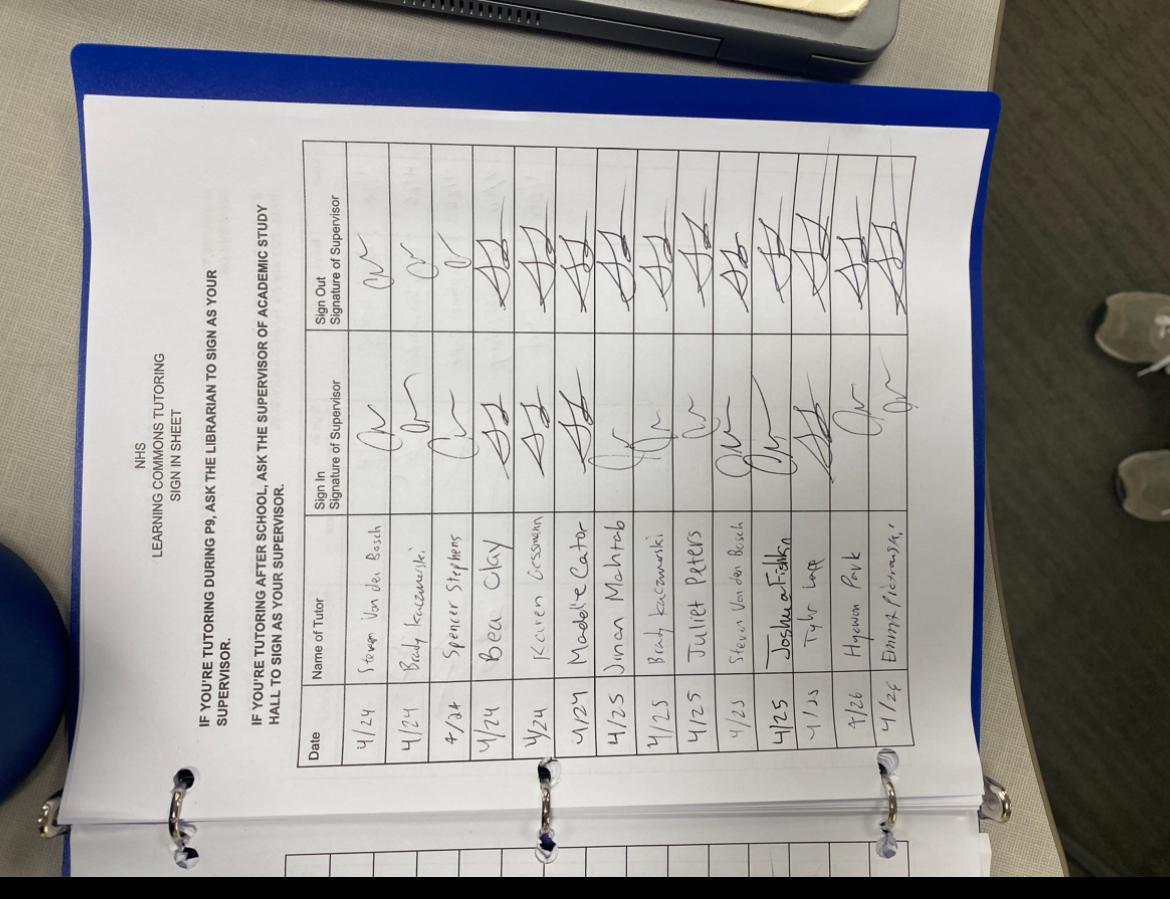 NHS
LEARNING COMMONS TUTORING
SIGN IN SHEET
IF YOU'RE TUTORING DURING P9, ASK THE LIBRARIAN TO SIGN AS YOUR
SUPERVISOR.
IF YOU'RE TUTORING AFTER SCHOOL, ASK THE SUPERVISOR OF ACADEMIC STUDY
HALL TO SIGN AS YOUR SUPERVISOR.
Date Name of Tutor Sign In Signature of Supervisor Sign Out Signature of Supervisor
4/24 Steven Van den Bosch
4/24 Brady Kaczmarski
4/24 Spencer Stephens
4/24 Bea Clay
4/24 Karen Gessmann
4/24 Maddie Cator
4/25 Jinan Mahtab
4/25 Brady Kaczmarski
4/25 Juliet Peters
4/25 Steven Van den Bosch
4/25 Joshua
4/25 Tyler
4/26 Hyewon Park
4/26 Emma